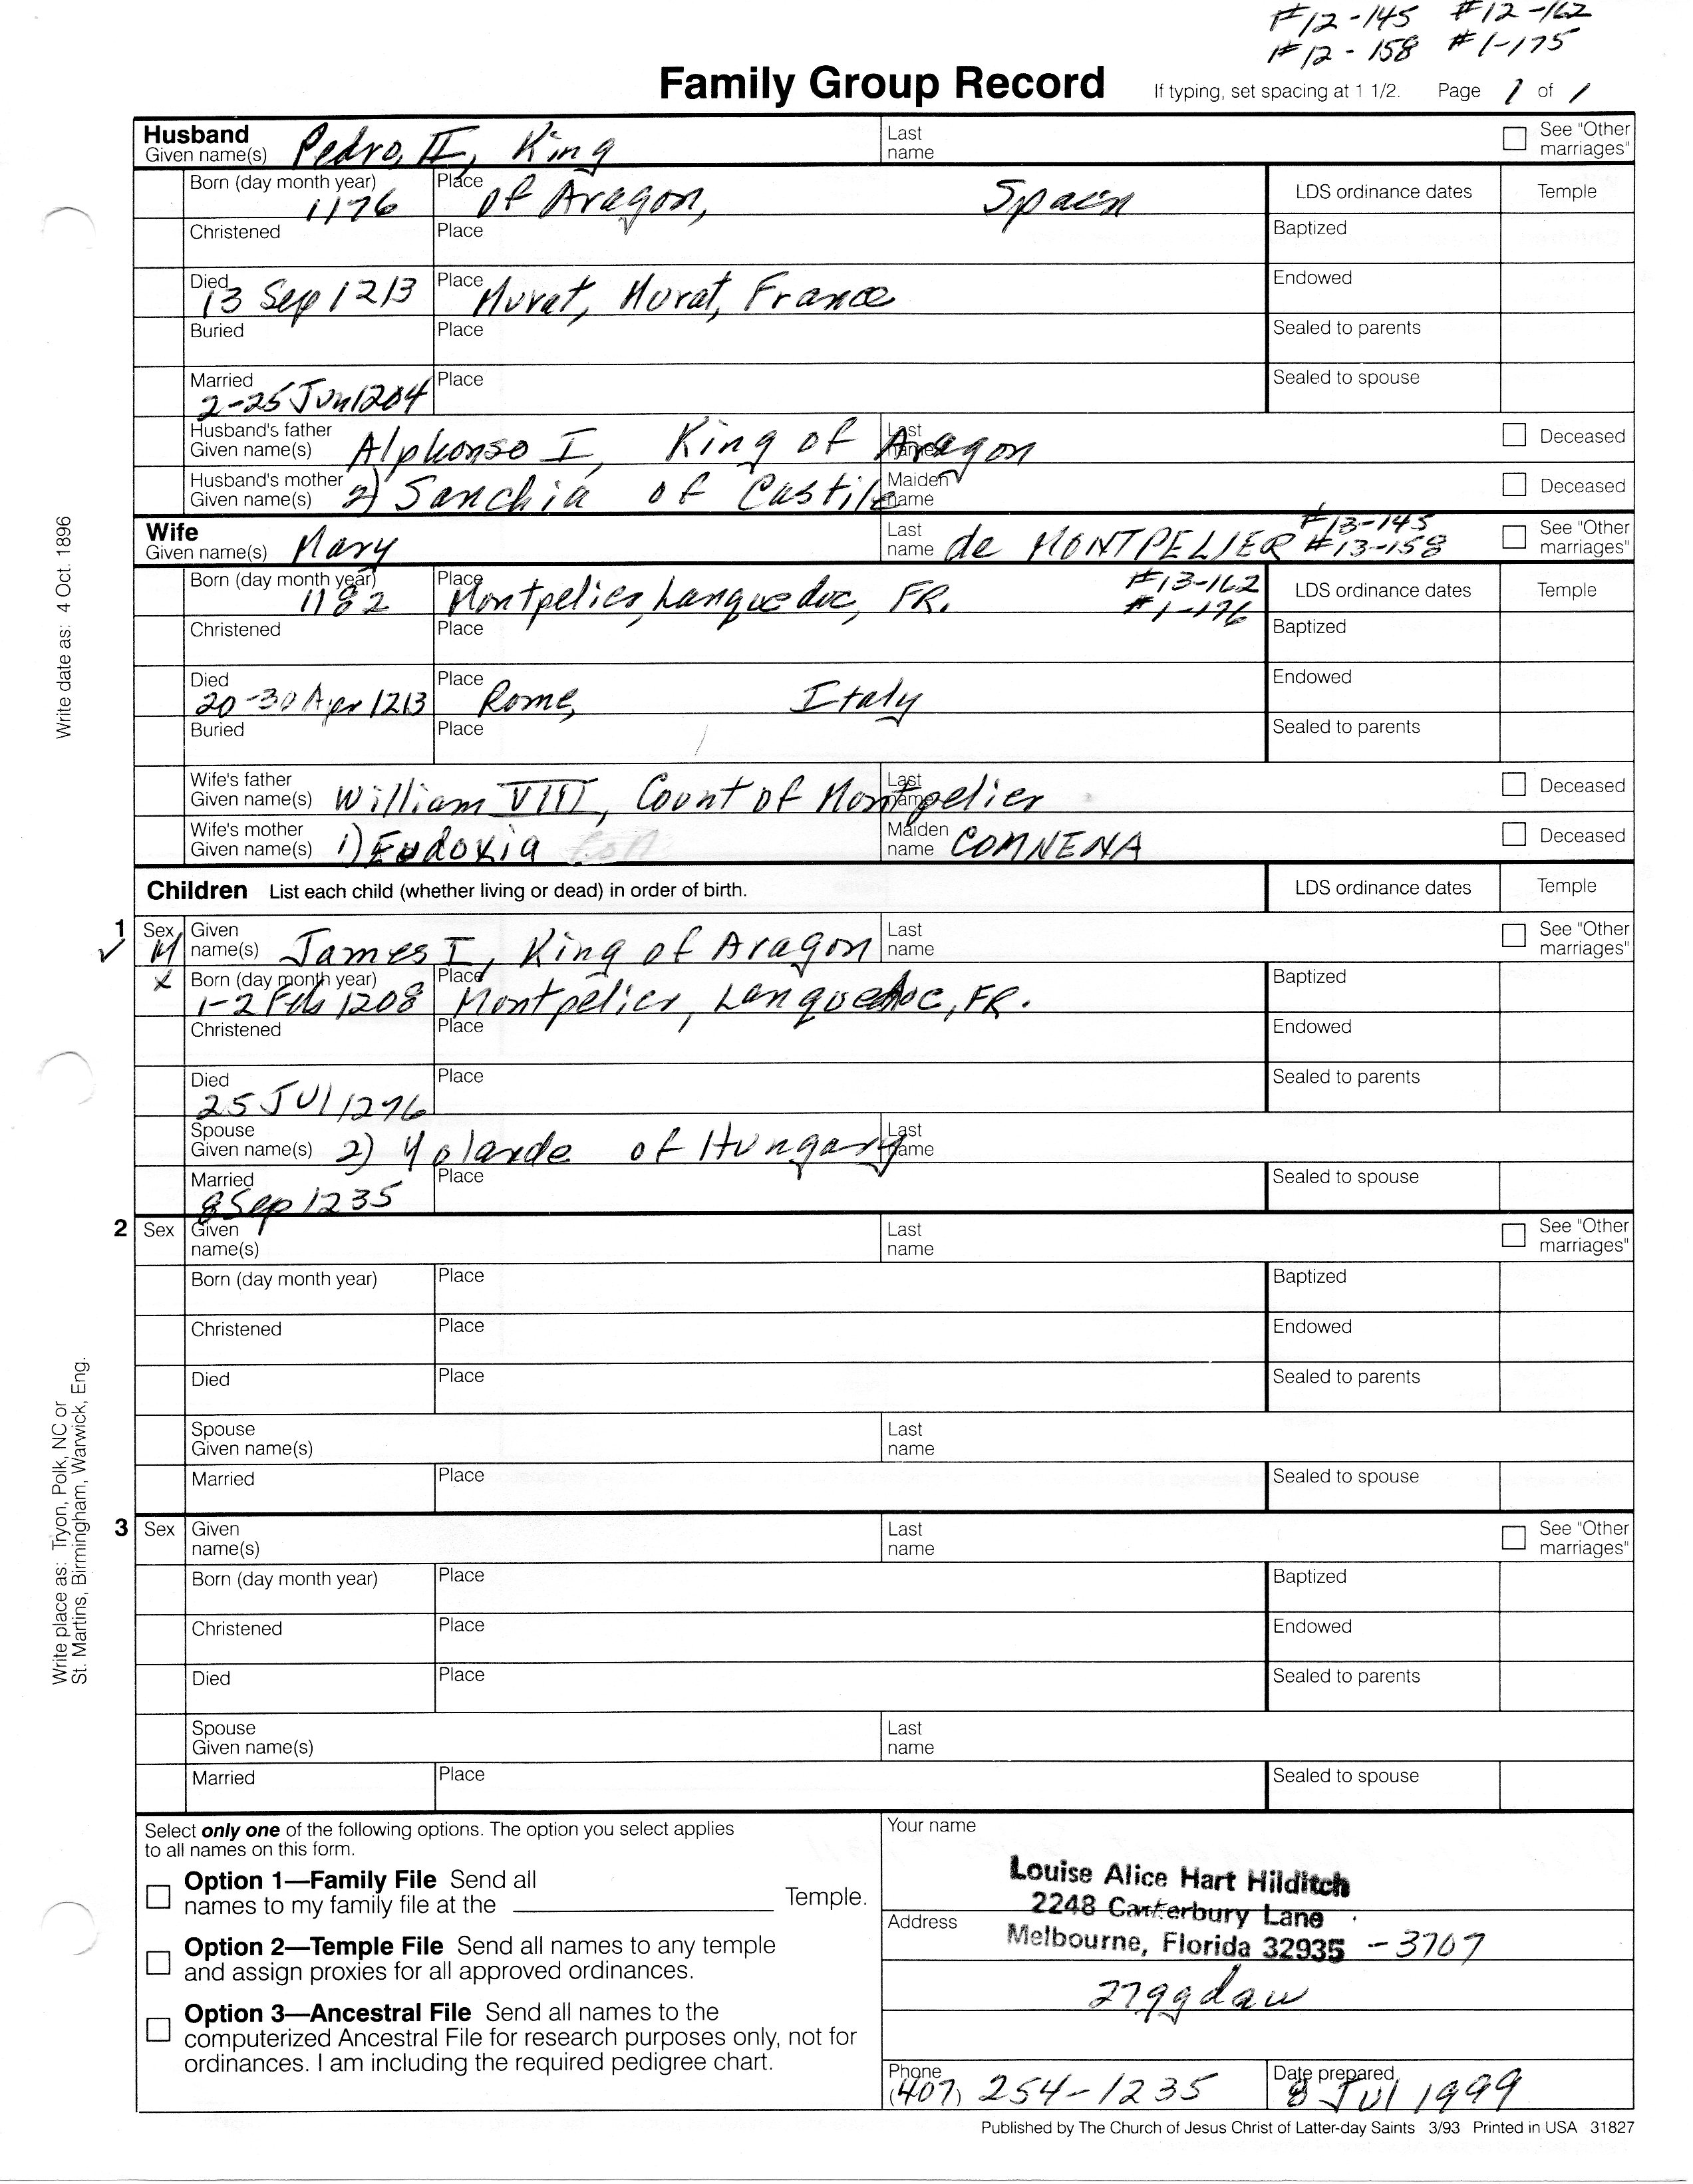 #12-145 #12-162
#12-158 #1-175
Family Group Record If typing, set spacing at 1 1/2. Page 1 of 1
Husband
Given name(s) Pedro, II, King Last name See "Other marriages"
Born (day month year) 1176 Place of Aragon, Spain LDS ordinance dates Temple
Christened Place Baptized
Died 13 Sep 1213 Place Murat, Morat, France Endowed
Buried Place Sealed to parents
Married 2-25 Jun 1204 Place Sealed to spouse
Husband's father Given name(s) Alphonso I, King of Aragon Last name Deceased
Husband's mother Given name(s) 2) Sanchia of Castile Maiden name Deceased
Wife
Given name(s) Mary Last name de MONTPELIER #13-145 #13-158 See "Other marriages"
Born (day month year) 1182 Place Montpelier, Languedoc, FR. #13-162 #1-176 LDS ordinance dates Temple
Christened Place Baptized
Died 20-30 Apr 1213 Place Rome, Italy Endowed
Buried Place Sealed to parents
Wife's father Given name(s) William VIII, Count of Montpelier Last name Deceased
Wife's mother Given name(s) 1) Eudoxia Maiden name COMNENA Deceased
Children List each child (whether living or dead) in order of birth. LDS ordinance dates Temple
1 Sex M Given name(s) James I, King of Aragon Last name See "Other marriages"
x Born (day month year) 1-2 Feb 1208 Place Montpelier, Languedoc, FR. Baptized
Christened Place Endowed
Died 25 JUl 1276 Place Sealed to parents
Spouse Given name(s) 2) Yolande of Hungary Last name
Married 8 Sep 1235 Place Sealed to spouse
2 Sex Given name(s) Last name See "Other marriages"
Born (day month year) Place Baptized
Christened Place Endowed
Died Place Sealed to parents
Spouse Given name(s) Last name
Married Place Sealed to spouse
3 Sex Given name(s) Last name See "Other marriages"
Born (day month year) Place Baptized
Christened Place Endowed
Died Place Sealed to parents
Spouse Given name(s) Last name
Married Place Sealed to spouse
Write date as: 4 Oct. 1896
Write place as: Tryon, Polk, NC or
St. Martins, Birmingham, Warwick, Eng.
Select only one of the following options. The option you select applies
to all names on this form.
Option 1—Family File Send all
names to my family file at the Temple.
Option 2—Temple File Send all names to any temple
and assign proxies for all approved ordinances.
Option 3—Ancestral File Send all names to the
computerized Ancestral File for research purposes only, not for
ordinances. I am including the required pedigree chart.
Your name
Louise Alice Hart Hilditch
2248 Canterbury Lane
Address
Melbourne, Florida 32935 -3707
Phone (407) 254-1235 Date prepared 8 JUl 1999
Published by The Church of Jesus Christ of Latter-day Saints 3/93 Printed in USA 31827